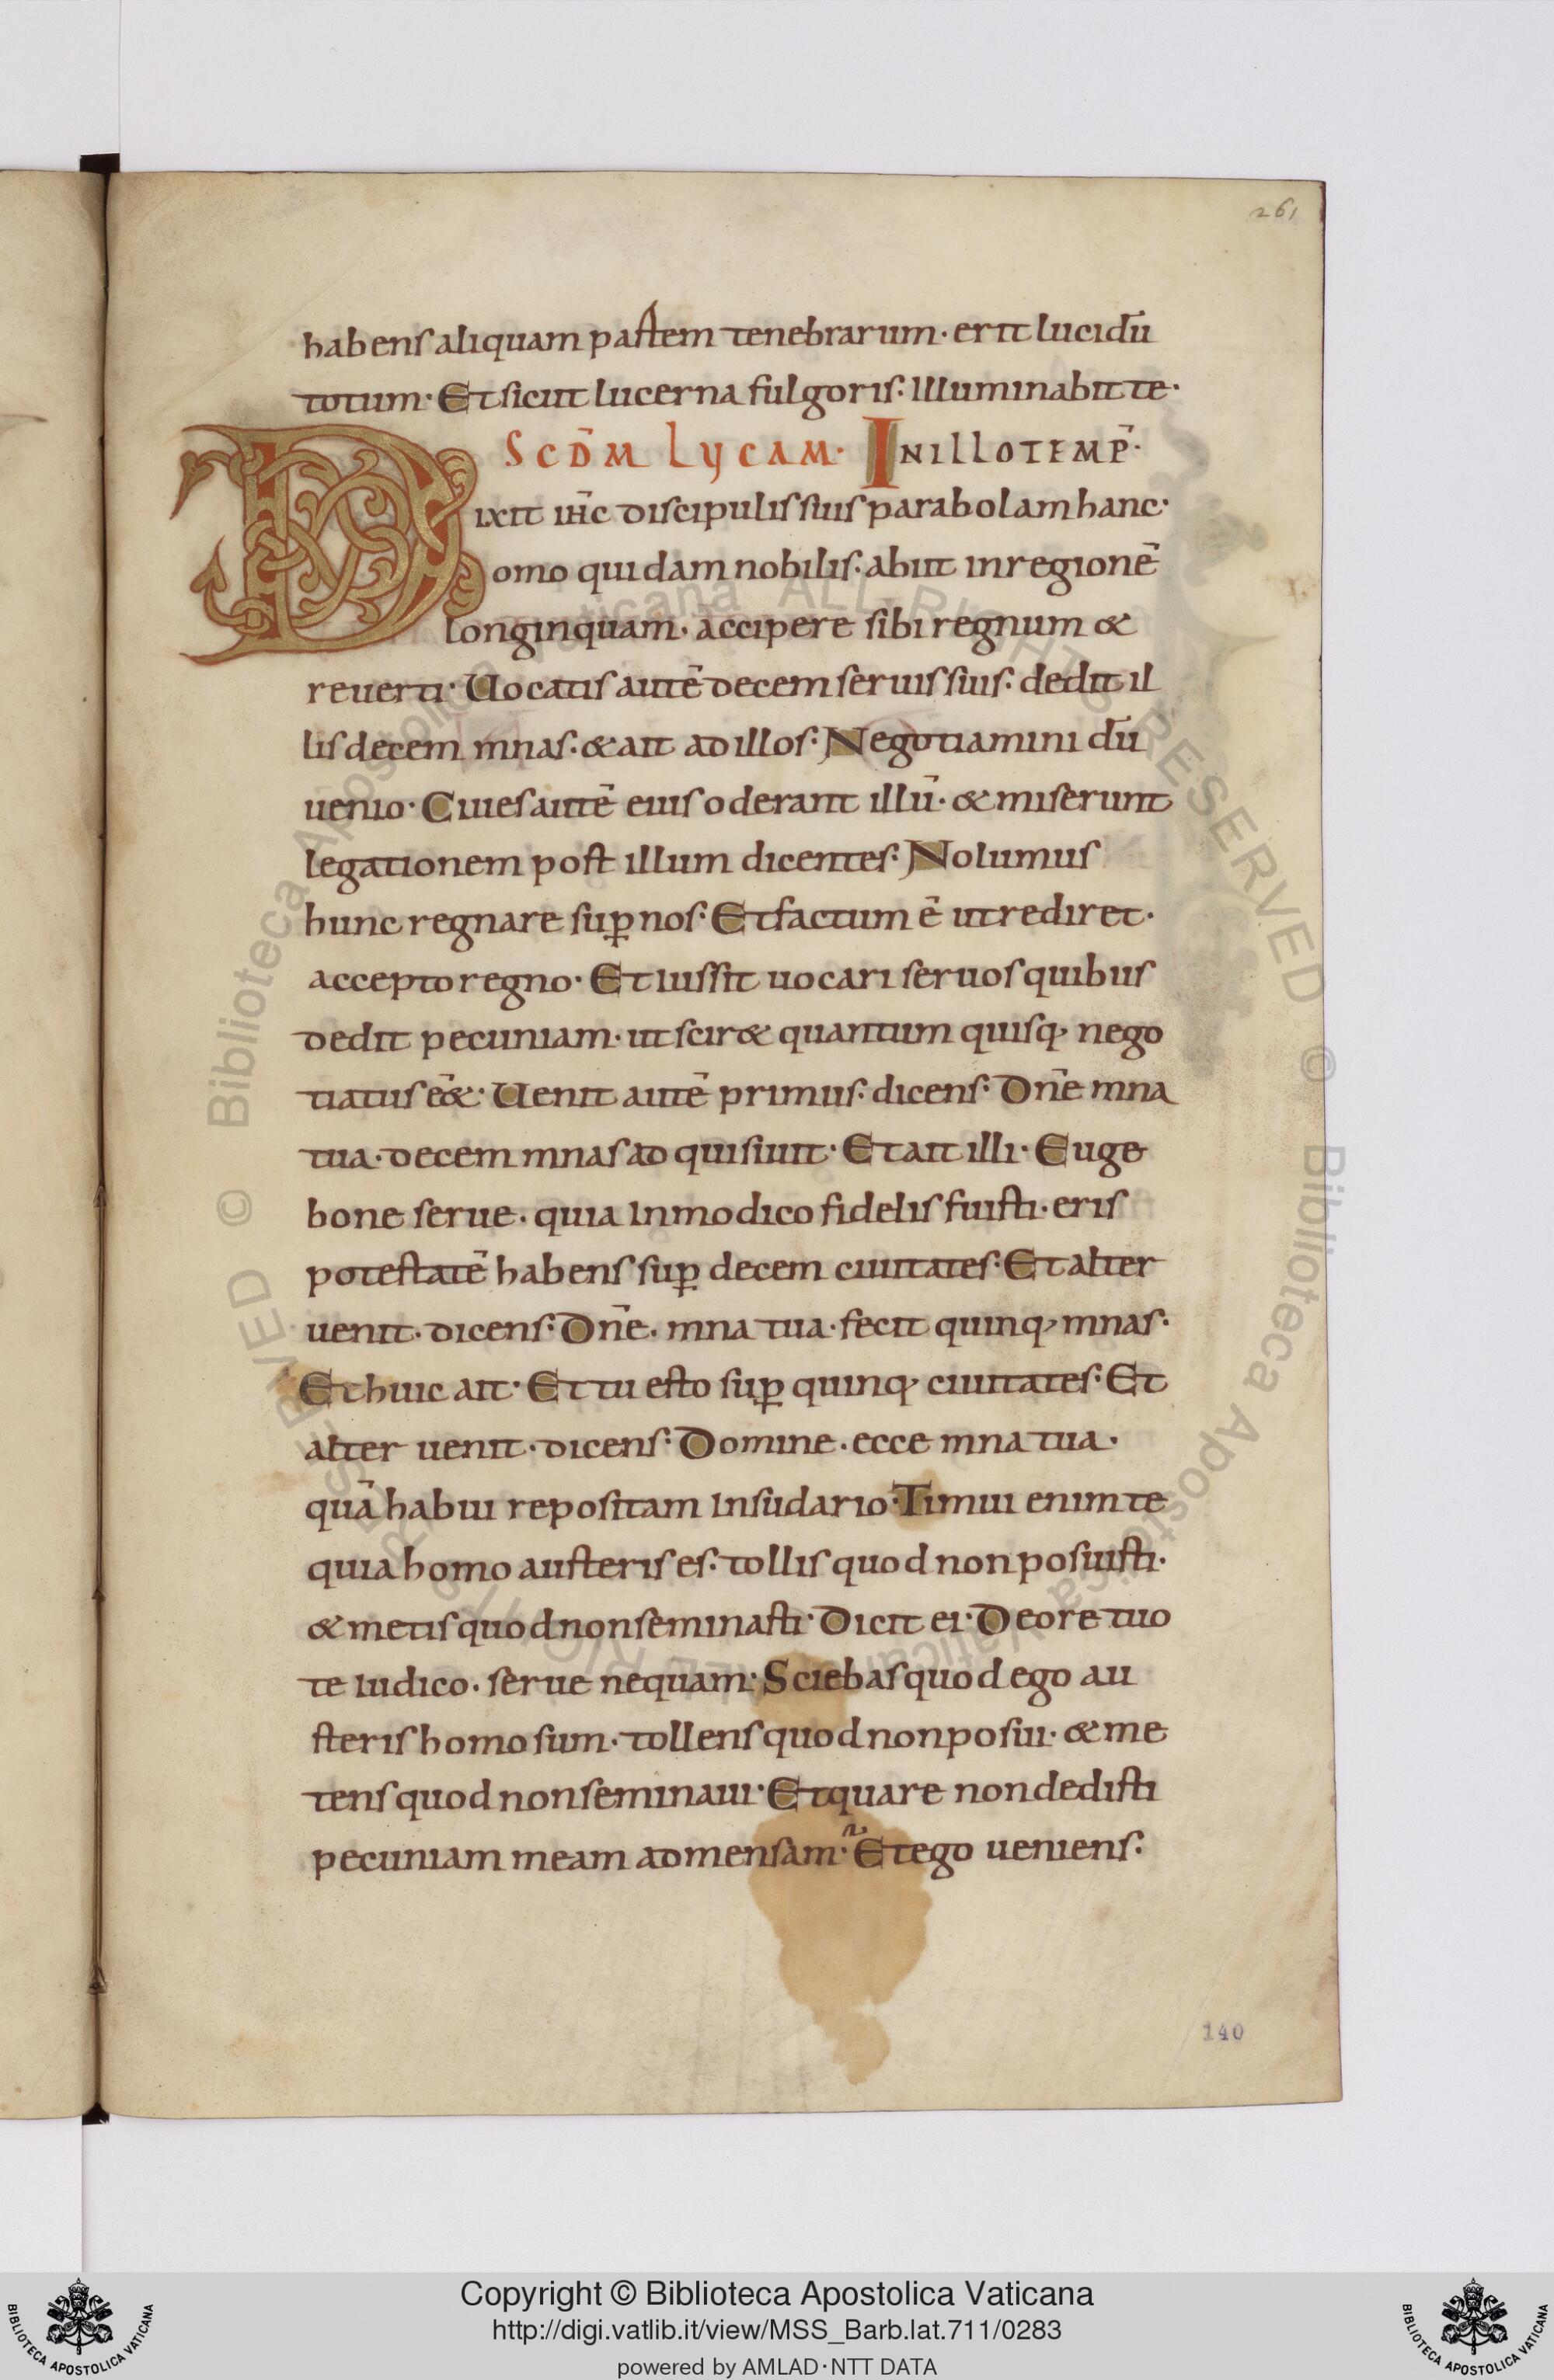 261
habens aliquam partem tenebrarum· erit lucidū
totum· Et sicut lucerna fulgoris· Illuminabit te·
SCDM̄ LYCAM· IN ILLO TEMP̄·
Dixit ih̄c discipulis suis parabolam hanc·
omo quidam nobilis· abiit in regionē
longinquam· accipere sibi regnum &
reuerti· Uocatis autē decem seruis suis· dedit il
lis decem mnas· & ait ad illos· Negotiamini dū
uenio· Ciues autē eius oderant illū· & miserunt
legationem post illum dicentes· Nolumus
hunc regnare suꝑ nos· Et factum ē ut rediret·
accepto regno· Et iussit uocari seruos quibus
dedit pecuniam· ut scir& quantum quisq, nego
tiatus ēē&· Uenit autē primus· dicens· Dn̄e mna
tua· decem mnas adquisiuit· Et ait illi· Euge
bone serue· quia in modico fidelis fuisti· eris
potestatē habens suꝑ decem ciuitates· Et alter
uenit· dicens· Dn̄e· mna tua· fecit quinq, mnas·
Et huic ait· Et tu esto suꝑ quinq, ciuitates· Et
alter uenit· dicens· Domine· ecce mna tua·
quā habui repositam in sudario· Timui enim te
quia homo austeris es· tollis quod non posuisti·
& metis quod non seminasti· Dicit ei· De ore tuo
te iudico· serue nequam· Sciebas quod ego au
steris homo sum· tollens quod non posui· & me
tens quod non seminaui· Et quare non dedisti
pecuniam meam ad mensam· Et ego ueniens·
140
© Biblioteca Apostolica Vaticana ALL RIGHTS RESERVED © Biblioteca Apostolica Vaticana ALL RIGHTS RESERVED
Copyright © Biblioteca Apostolica Vaticana
http://digi.vatlib.it/view/MSS_Barb.lat.711/0283
powered by AMLAD·NTT DATA
BIBLIOTECA APOSTOLICA VATICANA
BIBLIOTECA APOSTOLICA VATICANA